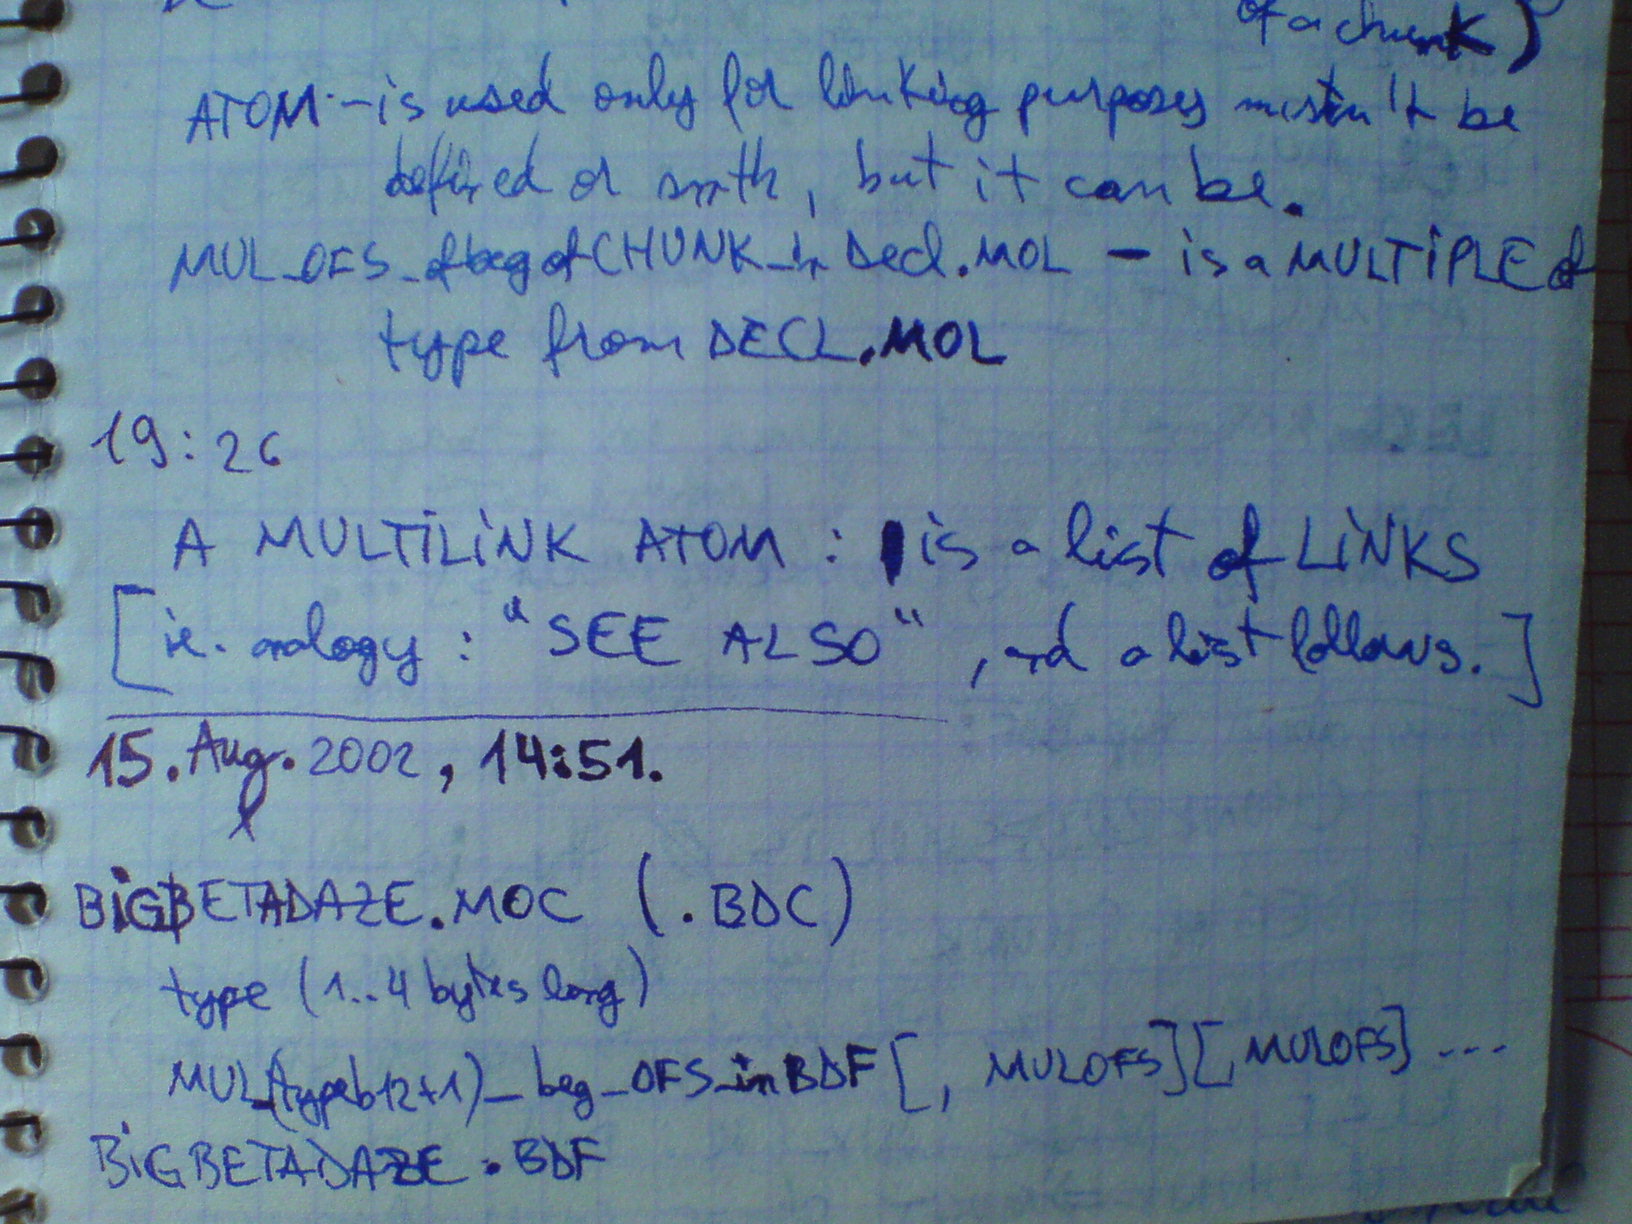 of a chunk)
ATOM - is used only for linking purposes mustn't be
defined or smth, but it can be.
MUL_OFS_of beg of CHUNK_in Decl.MOL - is a MULTiPLE of
type from DECL.MOL
19:26
A MULTiLiNK ATOM : is a list of LiNKS
[ie. analogy : "SEE ALSO", and a list follows.]
15. Aug. 2002, 14:51.
BiGBETADAZE.MOC (.BDC)
type (1..4 bytes long)
MUL_(type b12+1)_beg_OFS_in BDF [, MULOFS][, MULOFS] ...
BiGBETADAZE.BDF